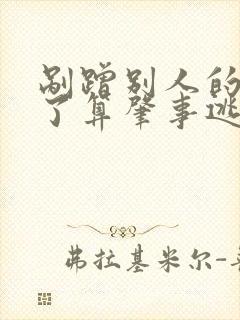 剐蹭别人的
了算肇事逃
弗拉基米尔-